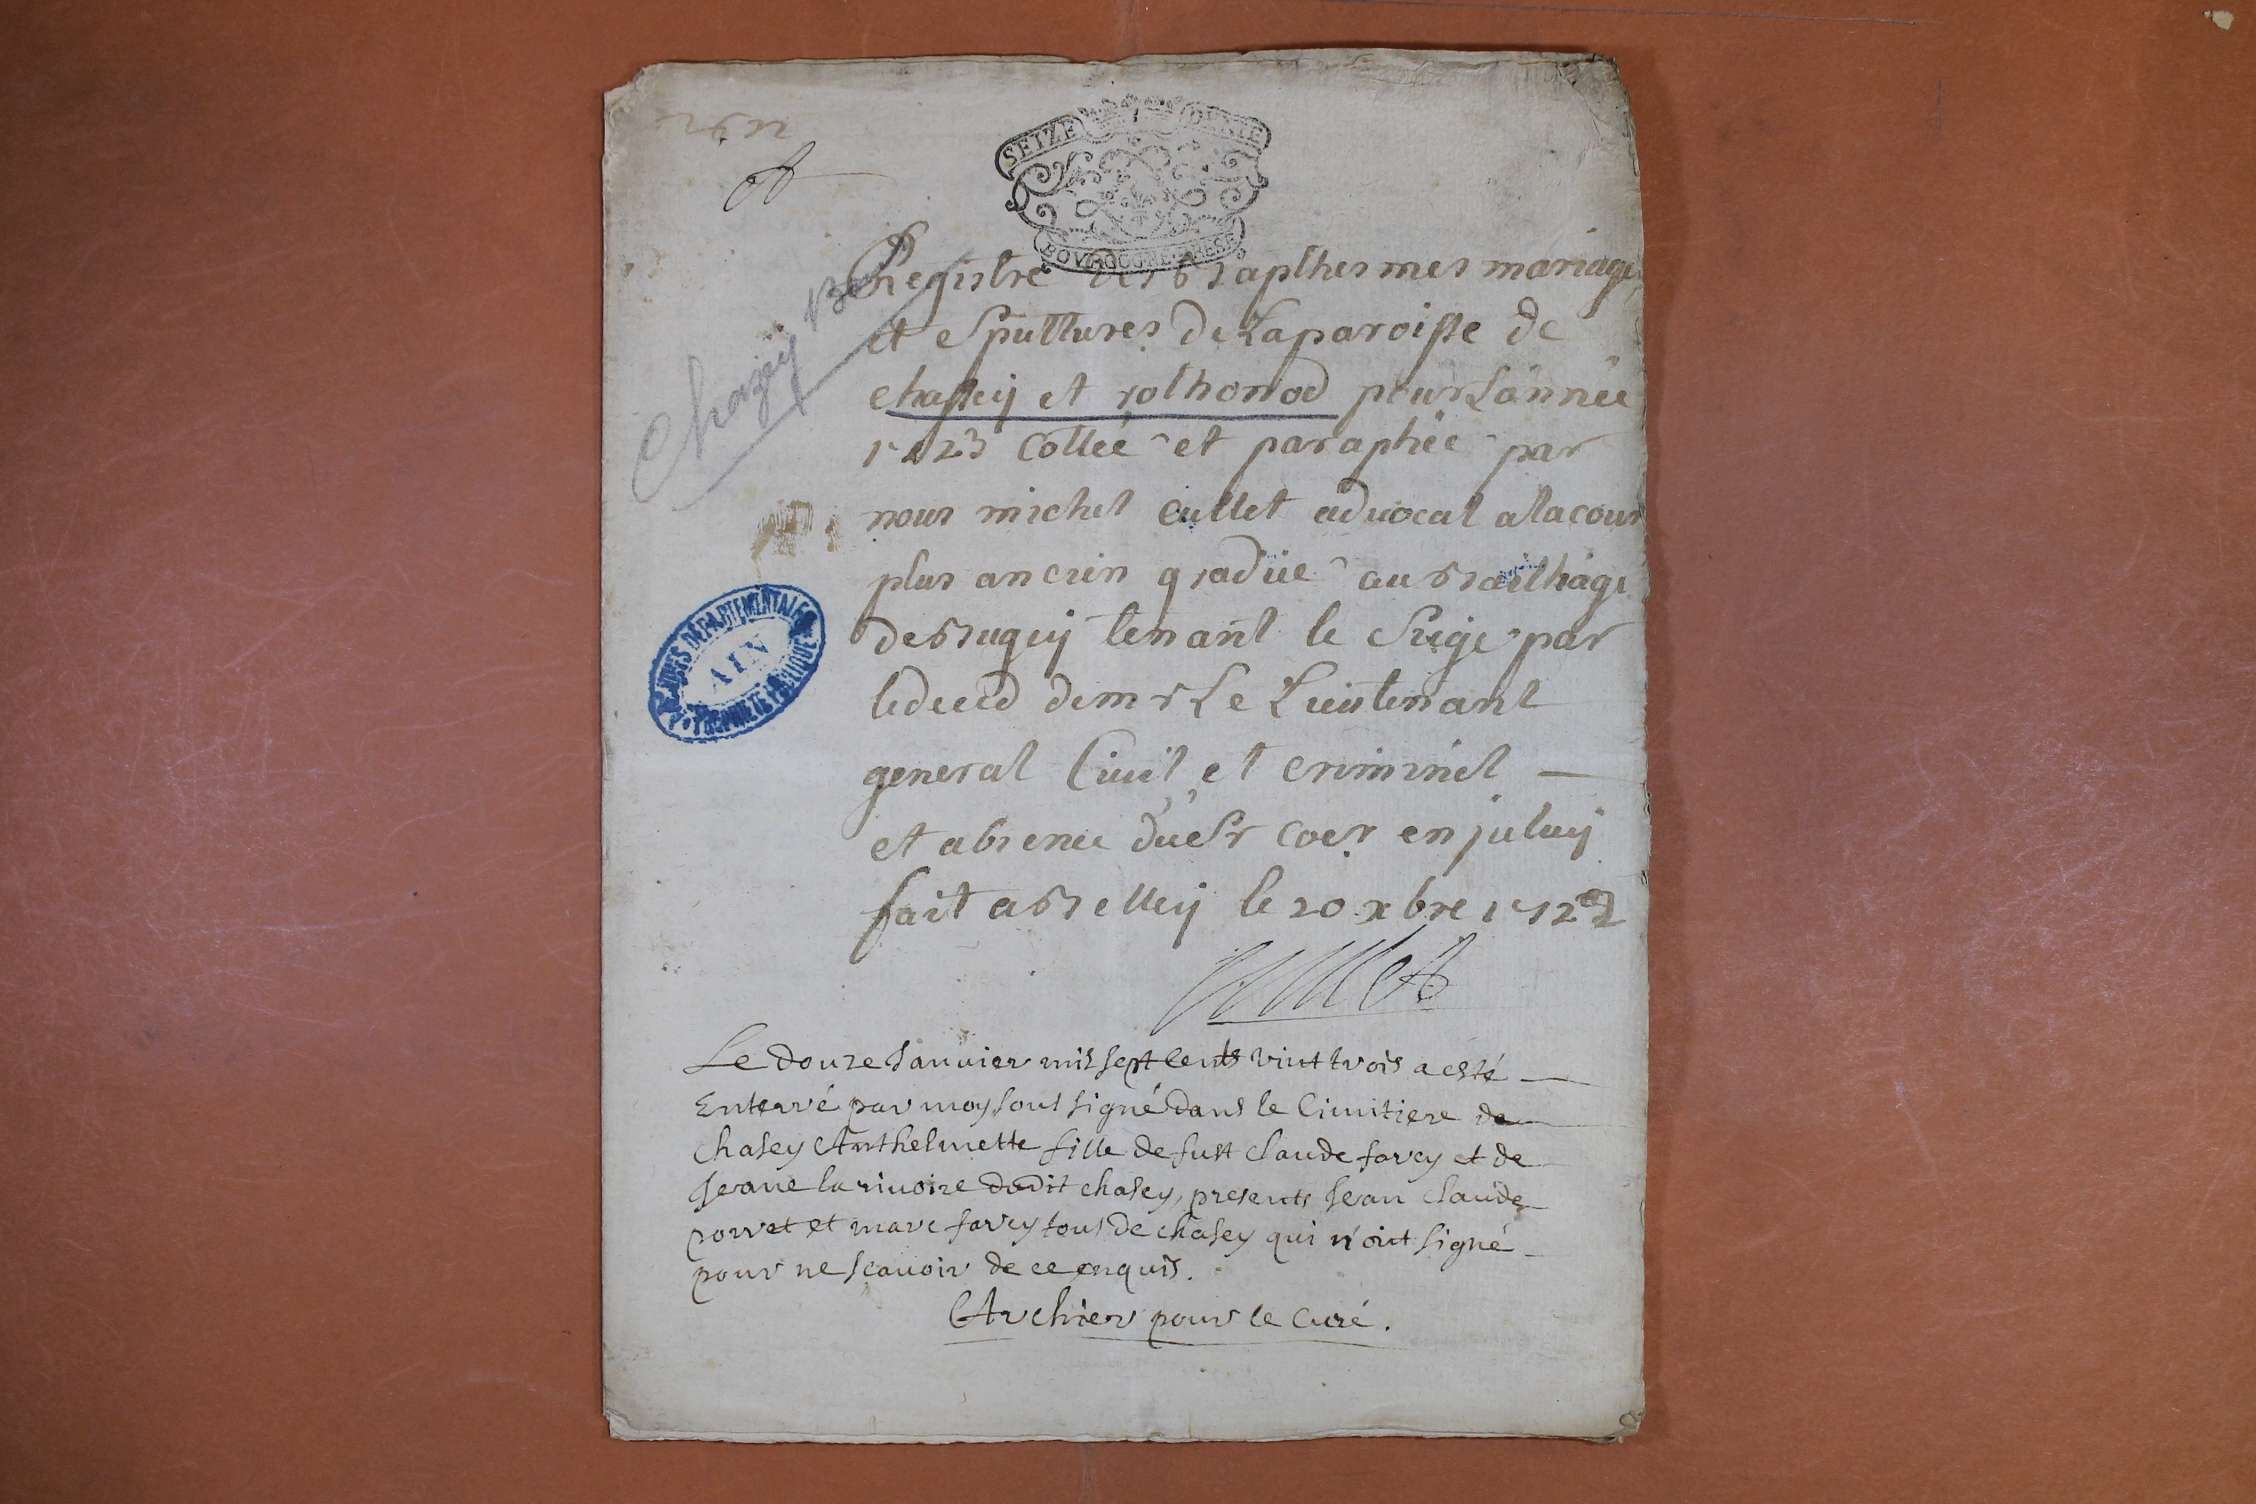 SEIZE DENIE
BOVRGOGNE BRESSE
Chazey Bons
Registre des bapthesmes mariage
et Spultures de Laparoisse de
chassey et rothonod pour Lannée
1723 Collée et paraphée par
nous michel cullet advocat a la cour
plus ancien gradüe au bailhage
de bugey tenant le Siege par
le deced de mr Le Lieutenant
general Civil et criminel —
et absence du Sr coer en jceluy
fait a belley le 20 xbre 1722
Cullet
ARCHIVES DÉPARTEMENTALES
AIN
PROPRIÉTÉ PUBLIQUE
Le douze Januier mil sept cents vint trois a esté —
Enterré par moy sous signé dans le Cimitiere de
chasey Anthelmette fille de fust Claude farcy et de
Jeane la riuoire dudit chasey, presents Jean Claude
porret et marc farcy tous de chasey qui n'ont signé —
pour ne scauoir de ce enquis.
Archier pour le curé.